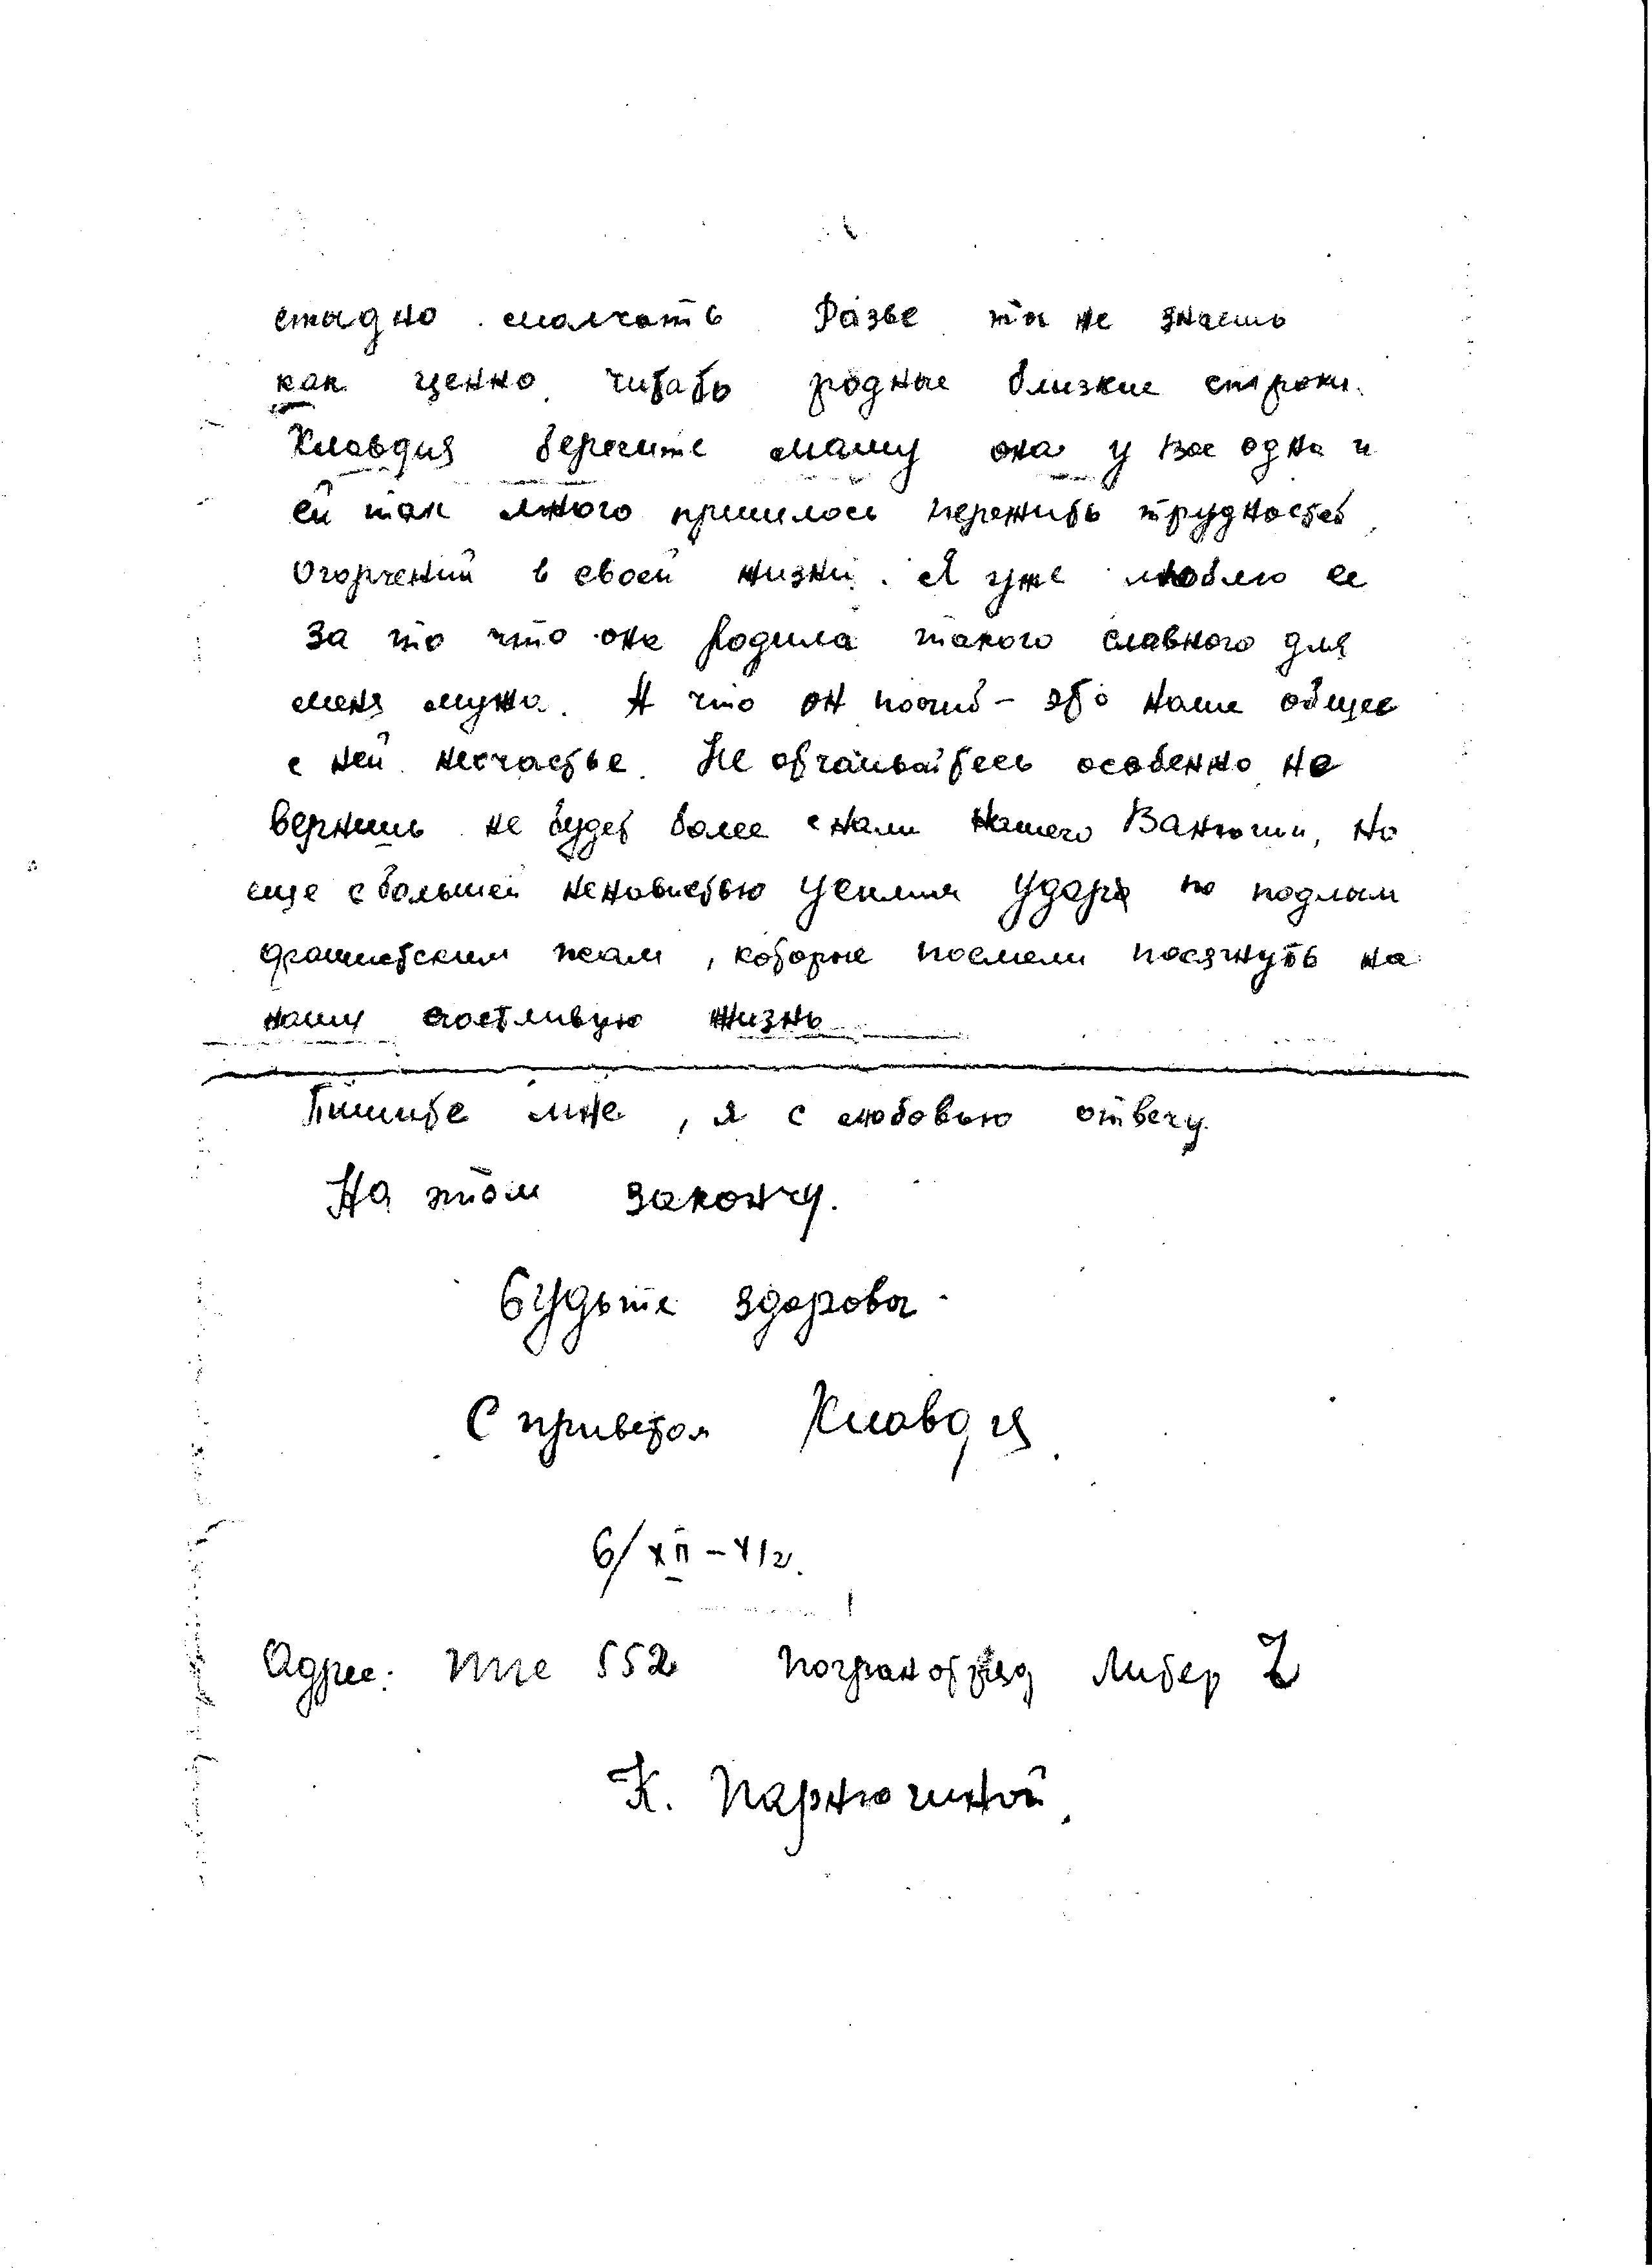 стыдно молчать Разве ты не знаешь
как ценно читать родные близкие строки.
Клавдия берегите маму она у вас одна и
ей так много пришлось пережить трудностей
огорчений в своей жизни. Я уже люблю ее
за то что она родила такого славного для
меня мужа. А что он погиб - это наше общее
с ней несчастье. Не отчаивайтесь особенно не
вернешь не будет более с нами нашего Ванюши, но
еще с большей ненавистью усилим удары по подлым
фашистским псам, которые посмели посягнуть на
нашу счастливую жизнь
Пишите мне, я с любовью отвечу.
На этом закончу.
Будьте здоровы.
С приветом Клавдия.
6/XII-41г.
Адрес: ППС 552 погранотряд Литер
К. Парнюгиной.